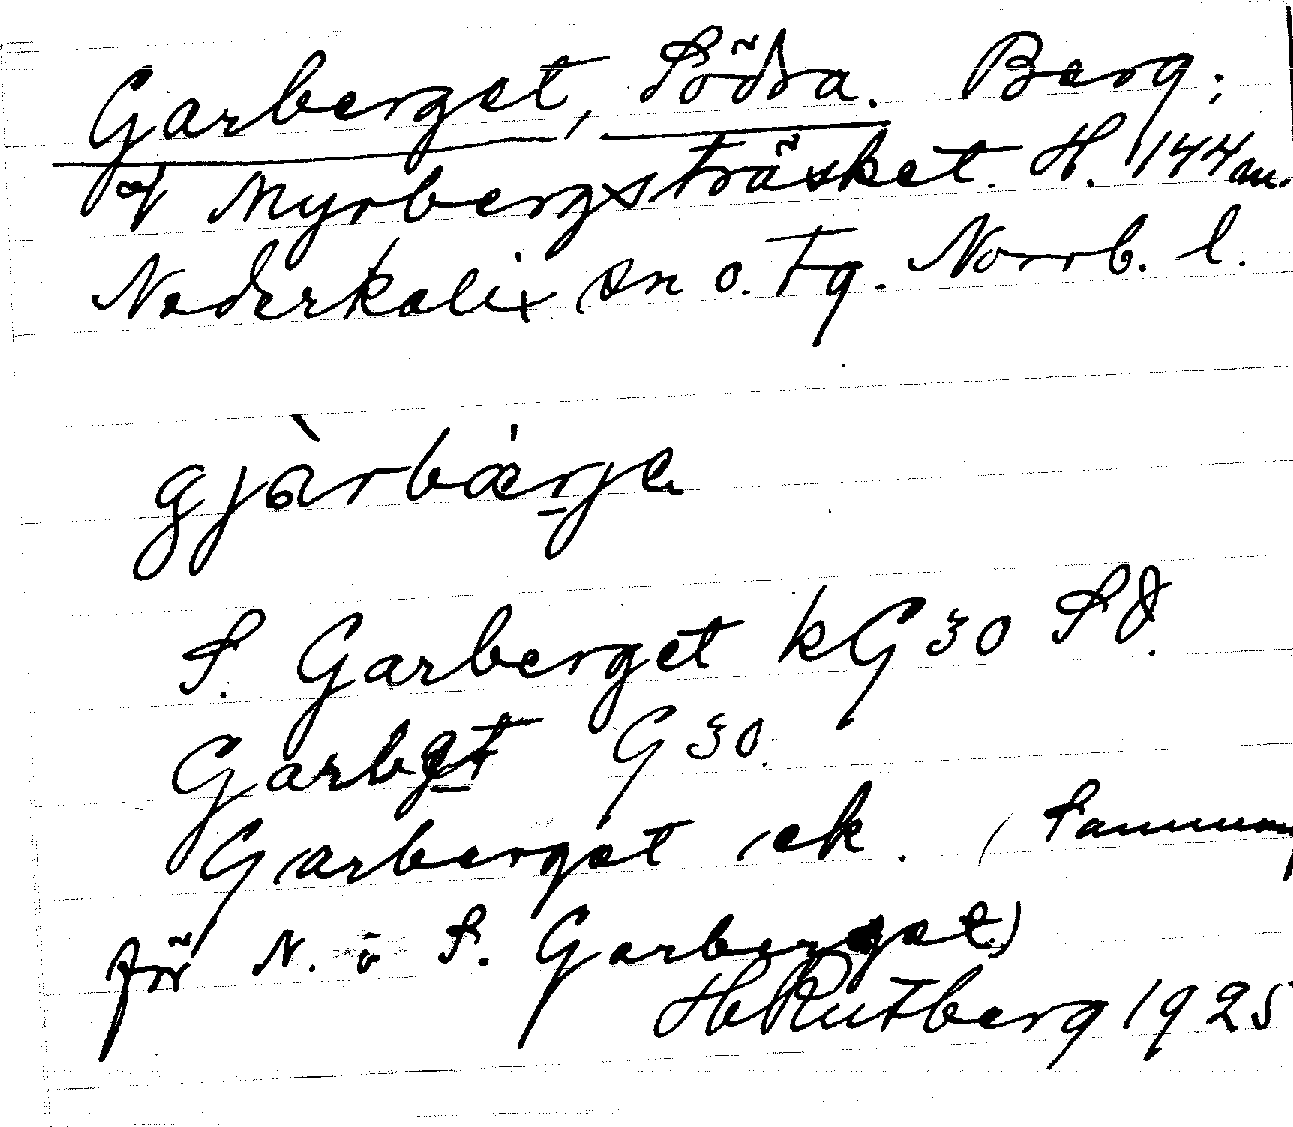 Garberget, Södra. Berg.
af Myrbergsträsket. H. 144 m.
Nederkalix sn o. tg. Norrb. l.
gjàrbærje
S. Garberget kG30
Garbgt G30.
Garberget ek. (Samman
för N. o S. Garberget)
H Rutberg 1925